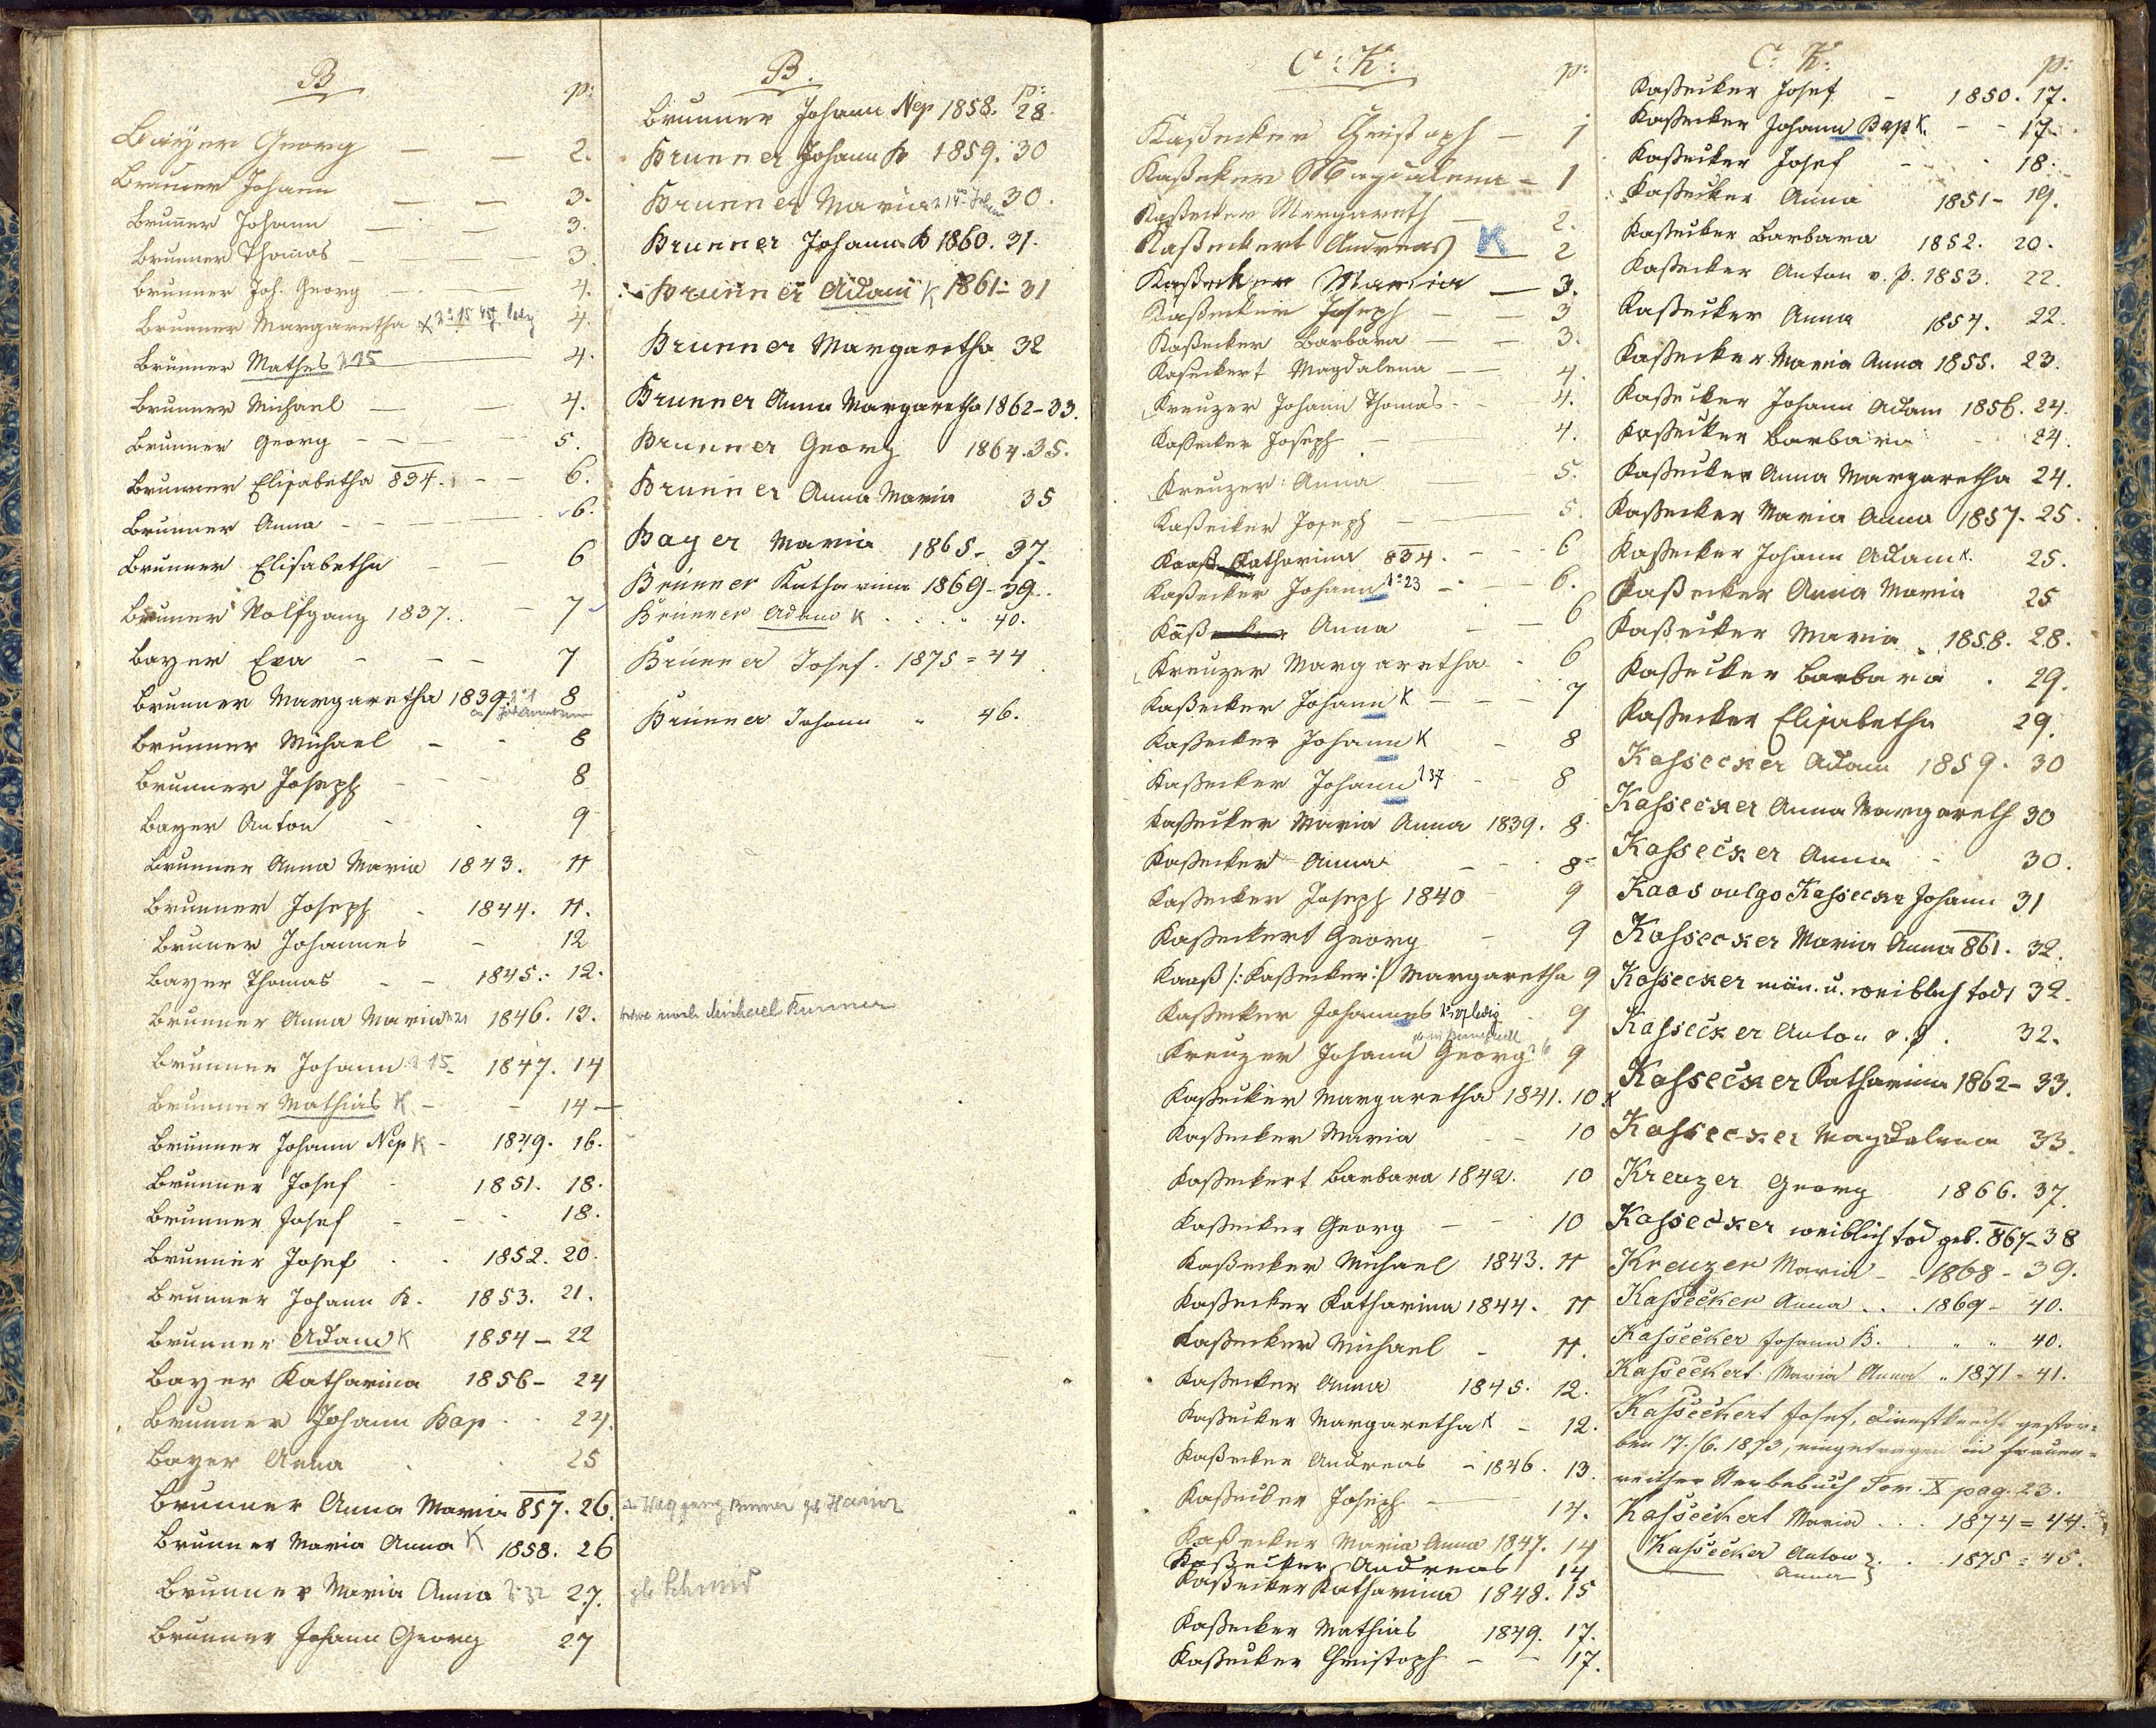 B. p:
Bayer Georg — — 2.
Brunner Johann — — 3.
Brunner Johann — — 3.
Brunner Thomas — — 3
Brunner Joh. Georg — — 4.
Brunner Margaretha 4.
Brunner Mathes 4.
Brunner Michael — — 4.
Brunner Georg - - - 5.
Brunner Elisabetha 834. - - 6.
Brunner Anna - - - 6.
Brunner Elisabetha - - 6
Brunner Wolfgang 1837. - 7
Bayer Eva - - - 7
Brunner Margaretha 1839. 8
Brunner Michael - - 8
Brunner Joseph - - 8
Bayer Anton - - 9
Brunner Anna Maria 1843. 11
Brunner Joseph - 1844. 11.
Bruner Johannes - 12
Bayer Thomas - - 1845. 12.
Brunner Anna Maria 1846. 13.
Brunner Johann 1847. 14
Brunner Mathias K - - 14 —
Brunner Johann Nep K - 1849. 16.
Brunner Josef - 1851. 18.
Brunner Josef - - - 18.
Brunner Josef . . 1852. 20.
Brunner Johann B. 1853. 21.
Brunner Adam K 1854 - 22
Bayer Katharina 1856 - 24
Brunner Johann Bap - - 24.
Bayer Anna 25
Brunner Anna Maria 857. 26.
Brunner Maria Anna K 1858. 26
Brunner Maria Anna 27.
Brunner Johann Georg 27
B. p:
Brunner Johann Nep 1858. 28.
Brunner Johann B 1859. 30
Brunner Maria 30.
Brunner Johann B 1860. 31.
Brunner Adam K 1861 - 31
Brunner Margaretha 32
Brunner Anna Margaretha 1862 - 33.
Brunner Georg 1864. 35.
Brunner Anna Maria 35
Bayer Maria 1865. 37.
Brunner Katharina 1869 - 39.
Brunner Adam K . . " 40.
Brunner Josef. 1875 = 44
Brunner Johann " 46.
C: K: p:
Kaßecker Christoph — 1
Kaßeker Magdalena - 1
Kaßecker Margareth — 2.
Kaßeckert Andreas K 2
Kaßecker Maria — 3.
Kaßecker Joseph - - 3
Kaßecker Barbara — - 3.
Kaseckert Magdalena — - 4.
Kreuzer Johann Thomas - - 4.
Kaßecker Joseph - 4.
Kreuzer Anna 5.
Kaßecker Joseph - 5.
Kaaß Katharina 834. - - 6
Kaßecker Johann - - 6.
Kaß Anna - 6
Kreuzer Margaretha - 6
Kaßecker Johann K - - - 7
Kaßecker Johann K - 8
Kaßecker Johann - - 8
Kaßecker Maria Anna 1839. 8
Kaßecker Anna - - 8
Kaßecker Joseph 1840 - 9
Kaßeckert Georg - 9
Kaaß /: Kaßecker :/ Margaretha 9
Kaßecker Johannes ledig 9
Kreuzer Johann Georg 9
Kaßecker Margaretha 1841. 10
Kaßecker Maria - - 10
Kaßeckert Barbara 1842. 10
Kaßecker Georg - - 10
Kaßecker Michael 1843. 11
Kaßecker Katharina 1844. 11
Kaßecker Michael - 11.
Kaßecker Anna 1845. 12.
Kaßecker Margaretha K - 12.
Kaßecker Andreas - 1846. 13.
Kaßecker Joseph — 14.
Kaßecker Maria Anna 1847. 14
Kaßecker Andreas 14
Kaßecker Katharina 1848. 15
Kaßecker Mathias 1849. 17.
Kaßecker Christoph - - 17.
C: K: p:
Kaßecker Josef - 1850. 17.
Kaßecker Johann Bap K. - - 17.
Kaßecker Josef - - 18.
Kaßecker Anna 1851 - 19.
Kaßecker Barbara 1852. 20.
Kaßecker Anton v. P. 1853. 22.
Kaßecker Anna 1854. 22.
Kaßecker Maria Anna 1855. 23.
Kaßecker Johann Adam 1856. 24.
Kaßecker Barbara - 24.
Kaßecker Anna Margaretha 24.
Kaßecker Maria Anna 1857. 25.
Kaßecker Johann Adam K. 25.
Kaßecker Anna Maria 25
Kaßecker Maria 1858. 28.
Kaßecker Barbara . 29.
Kaßecker Elisabetha 29.
Kassecker Adam 1859. 30
Kassecker Anna Margareth 30
Kassecker Anna - 30.
Kaas vulgo Kassecker Johann 31
Kassecker Maria Anna 861. 32.
Kassecker män. u. weiblich todt 32.
Kassecker Anton v. P. 32.
Kassecker Katharina 1862 - 33.
Kassecker Magdalena 33.
Kreuzer Georg 1866. 37.
Kassecker weiblich tod geb. 867 - 38
Kreuzer Maria - 1868 - 39.
Kassecker Anna . . . 1869 - 40.
Kassecker Johann B. . " " 40.
Kasseckert Maria Anna " 1871 - 41.
Kasseckert Josef, Dienstknecht gestor=
ben 17./6. 1873, eingetragen in Frauen=
reither Sterbebuch Tom. X pag. 23.
Kasseckert Maria . . . 1874 = 44.
Kassecker Anton } . . 1875 = 45.
Anna